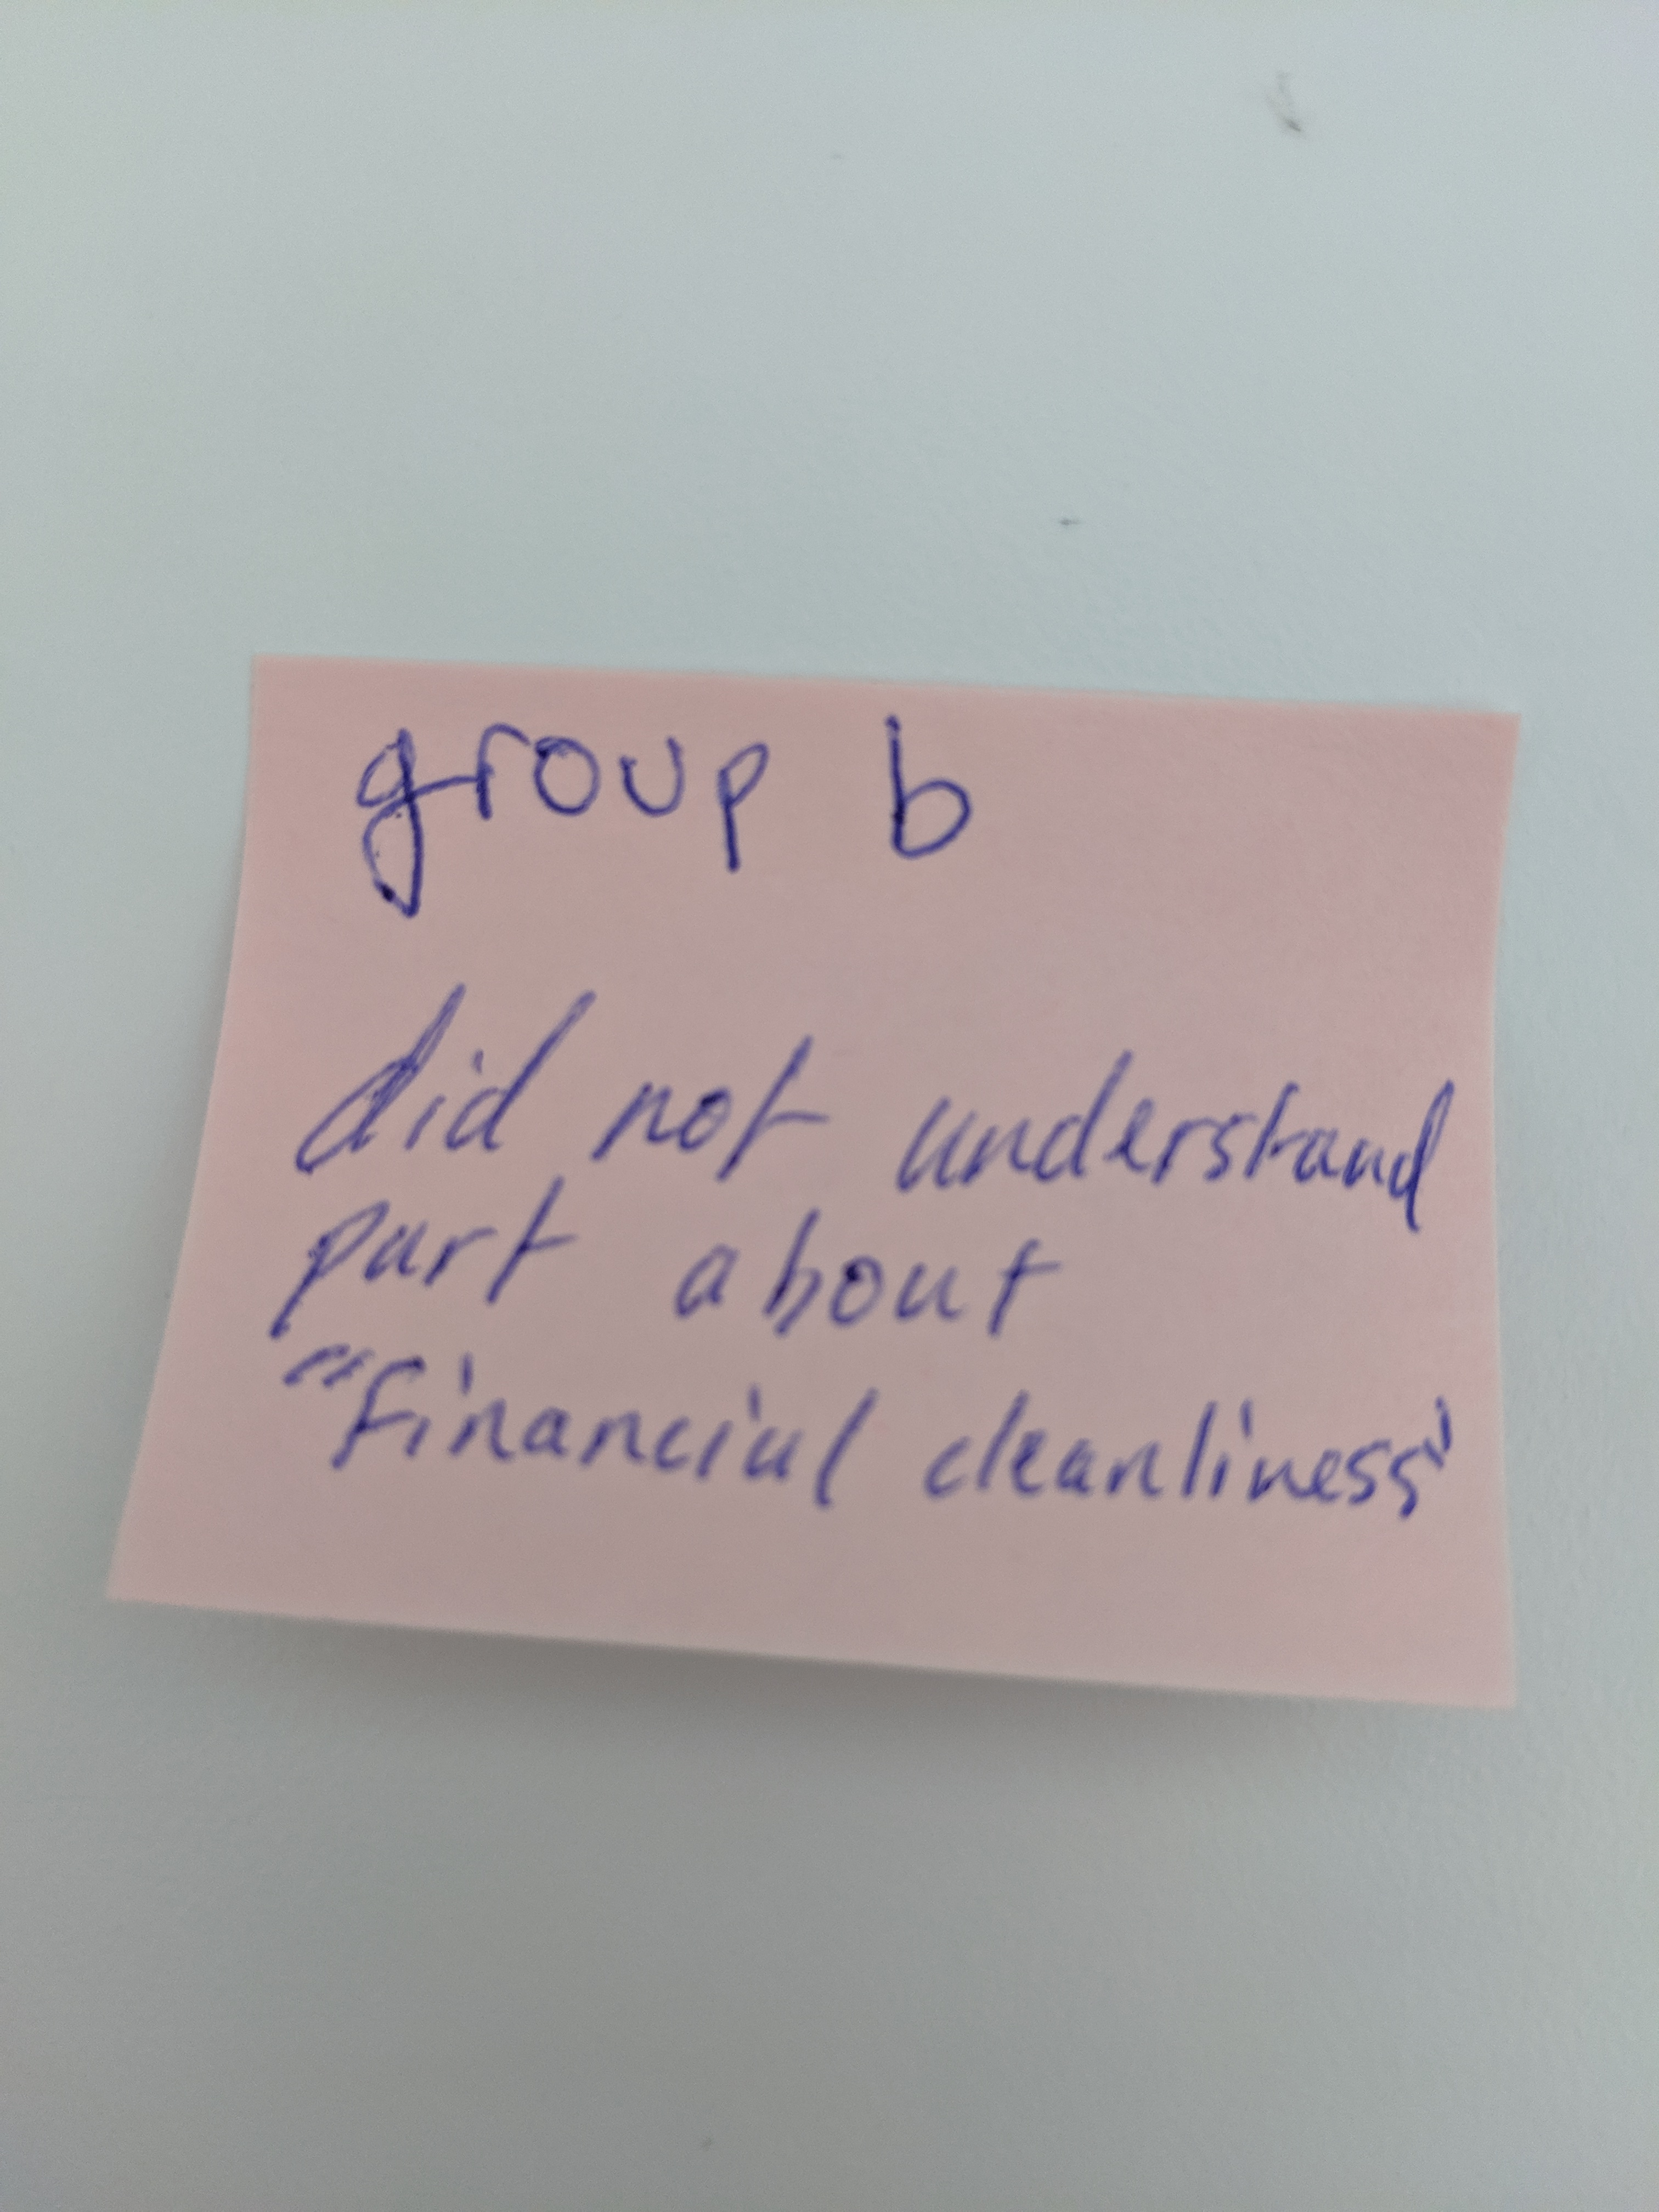 group b
did not understand
part about
"financial cleanliness"